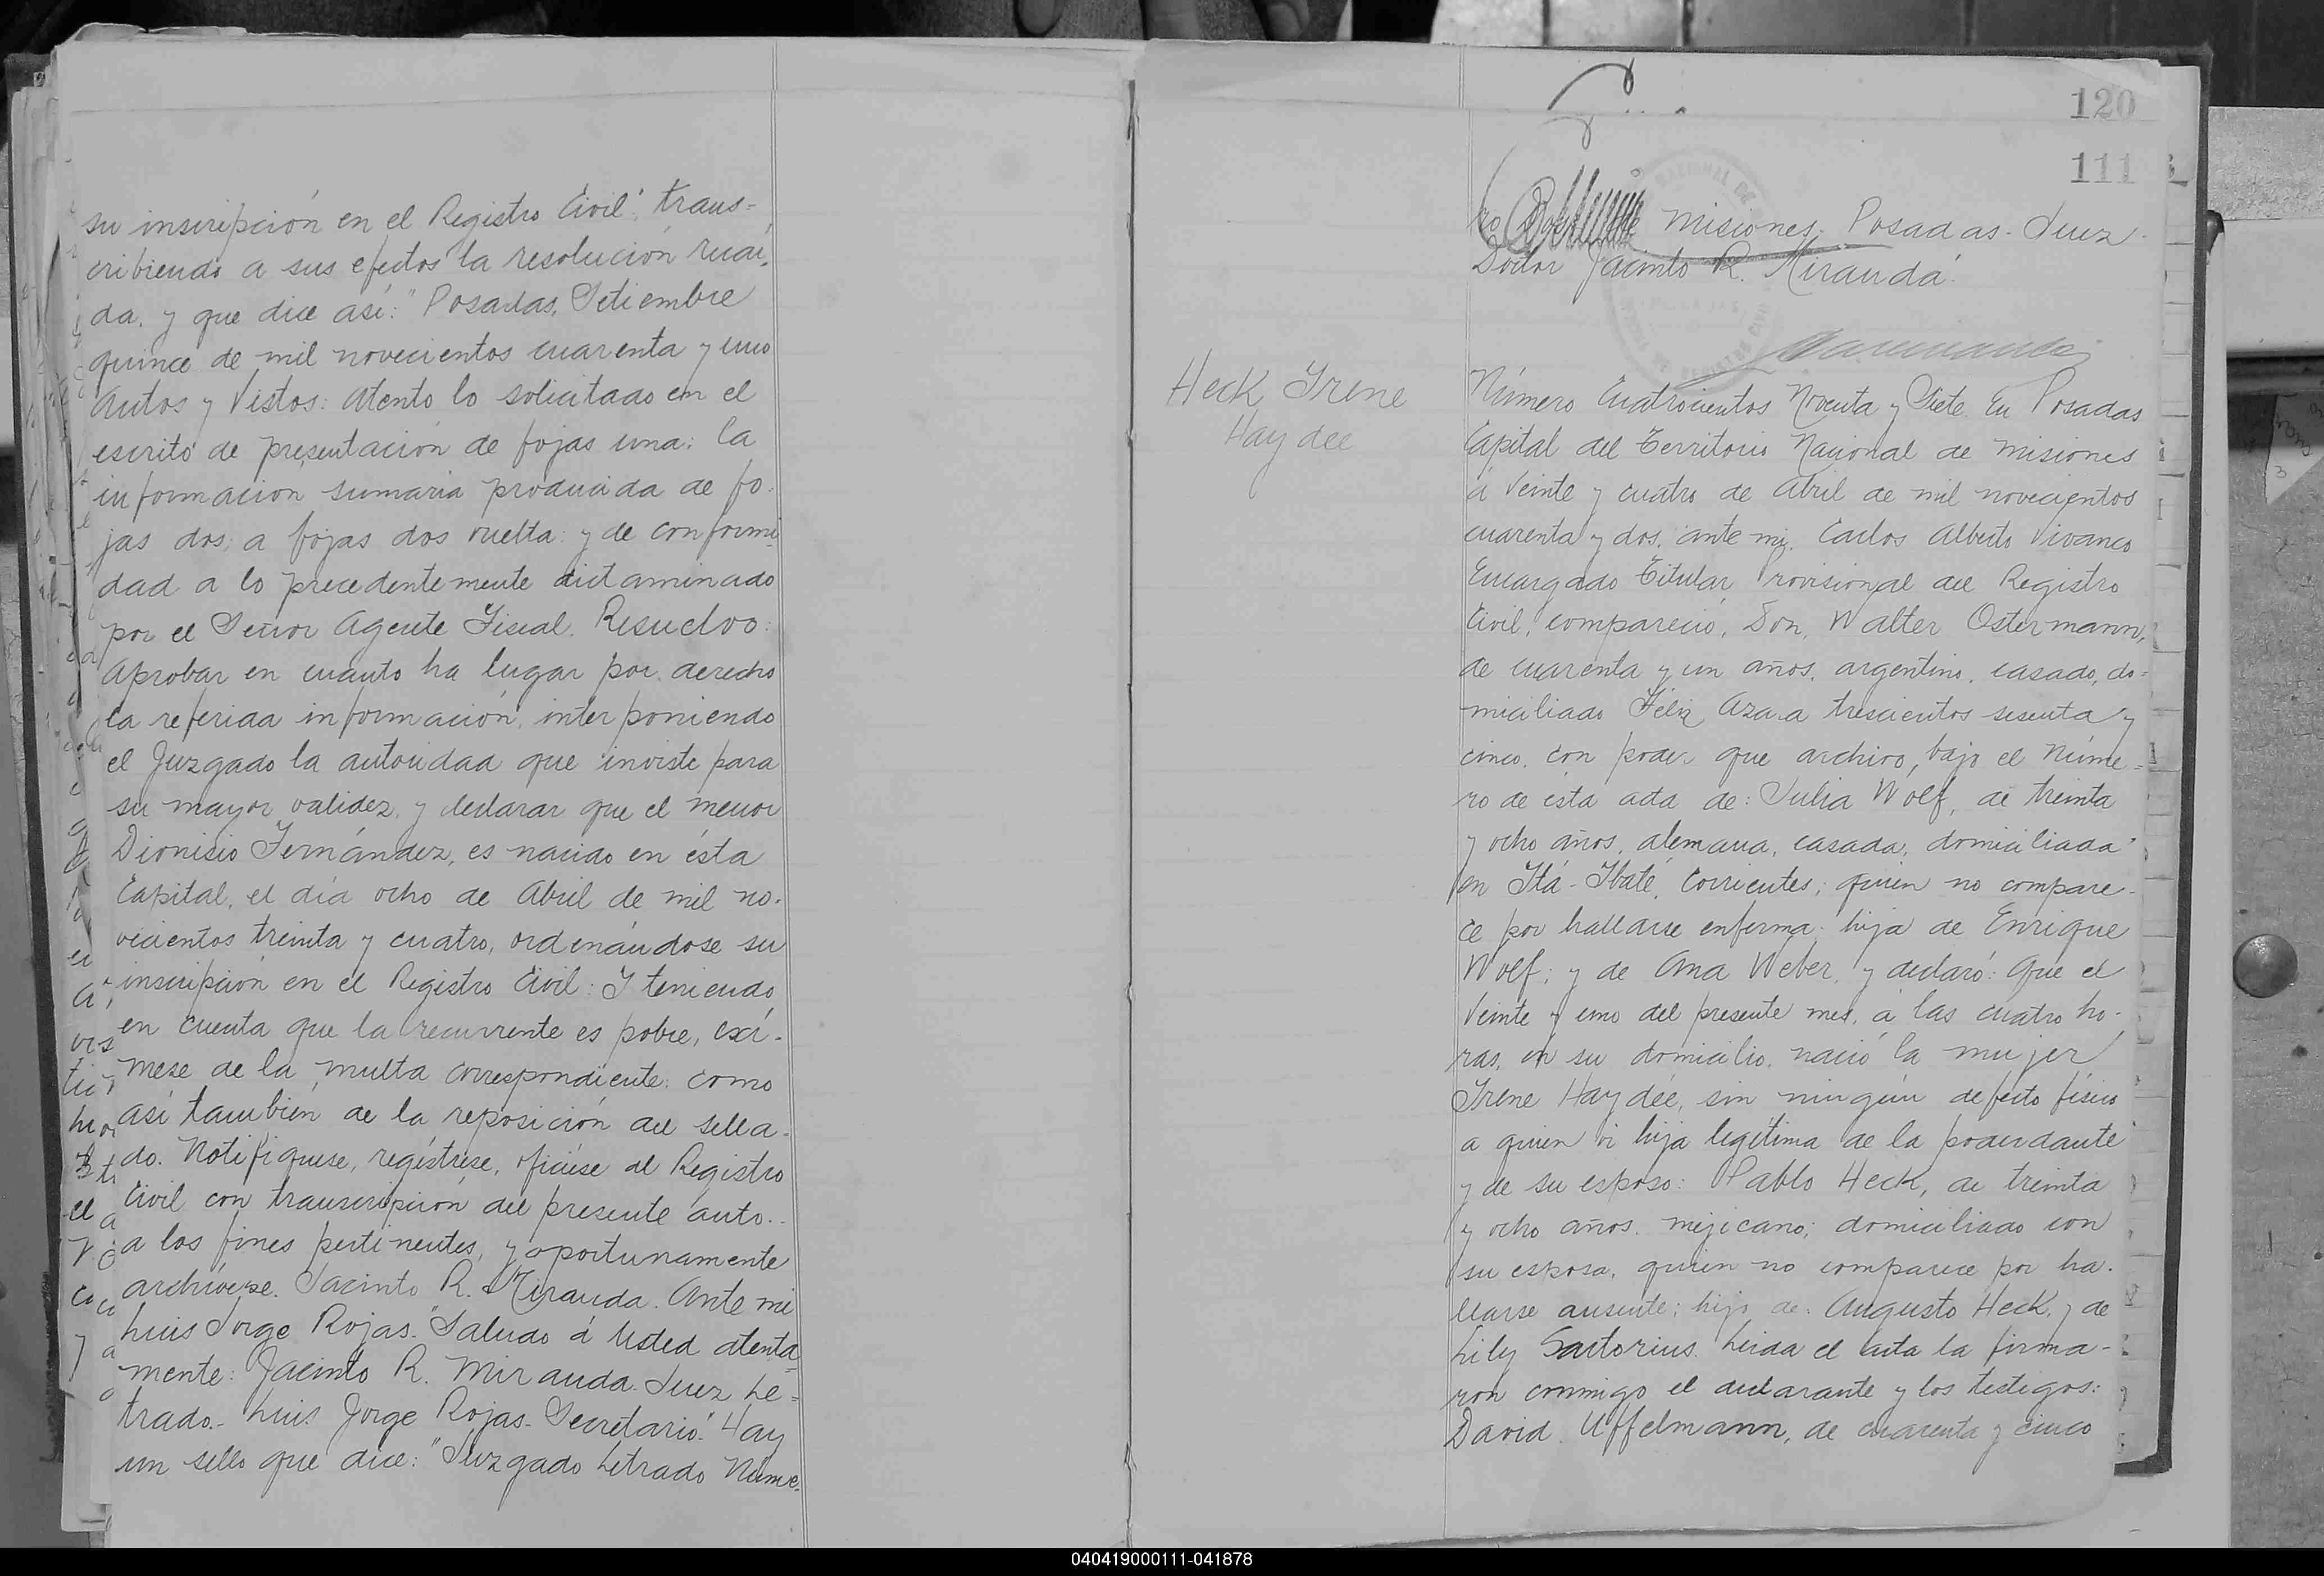 su inscripción en el Registro Civil", trans-
cribiendo a sus efectos la resolución recaí-
da, y que dice así: "Posadas, Setiembre
quince de mil novecientos cuarenta y uno
Autos y Vistos: Atento lo solicitado en el
escrito de presentación de fojas una: la
información sumaria producida de fo-
jas dos, a fojas dos vuelta: y de conformi-
dad a lo precedentemente dictaminado
por el Señor Agente Fiscal. Resuelvo:
Aprobar en cuanto ha lugar por derecho
la referida información, interponiendo
el Juzgado la autoridad que inviste para
su mayor validez, y declarar que el menor
Dionisio Fernández, es nacido en ésta
Capital, el día ocho de Abril de mil no-
vecientos treinta y cuatro, ordenándose su
inscripción en el Registro Civil: Y teniendo
en cuenta que la recurrente es pobre, exí-
mese de la multa correspondiente: como
así también de la reposición del sella-
do. Notifíquese, regístrese, ofíciese al Registro
Civil con transcripción del presente auto.
a los fines pertinentes, y oportunamente
archívese. Jacinto R. Miranda. Ante mi
Luis Jorge Rojas. "Saludo á Usted atenta-
mente: Jacinto R. Miranda. Juez Le-
trado. Luis Jorge Rojas. Secretario". Hay
un sello que dice: "Juzgado Letrado Núme-
120
111
ro Misiones. Posadas. Juez
Doctor Jacinto R. Miranda".
Heck Irene
Haydee
Número Cuatrocientos Noventa y Siete. En Posadas
Capital del Territorio Nacional de Misiones
á Veinte y cuatro de Abril de mil novecientos
cuarenta y dos, ante mi, Carlos Alberto Vivanco
Encargado Titular Provisional del Registro
Civil, compareció, Don, Walter Ostermann,
de cuarenta y un años, argentino, casado, do-
miciliado Féliz Azara trescientos sesenta y
cinco, con poder que archivo, bajo el Núme-
ro de ésta acta de: Julia Wolf, de treinta
y ocho años, alemana, casada, domiciliada
en Itá-Ibaté, Corrientes; quien no compare-
ce por hallarse enferma; hija de Enrique
Wolf; y de Ana Weber, y declaró: Que el
Veinte y uno del presente mes, á las cuatro ho-
ras, en su domicilio, nació la mujer
Irene Haydée, sin ningún defecto físico
a quien vi hija legítima de la poderdante
y de su esposo: Pablo Heck, de treinta
y ocho años, mejicano; domiciliado con
su esposa, quien no comparece por ha-
llarse ausente; hijo de: Augusto Heck, y de
Lily Sartorius. Leída el acta la firma-
ron conmigo el declarante y los testigos:
David Uffelmann, de cuarenta y cinco
040419000111-041878